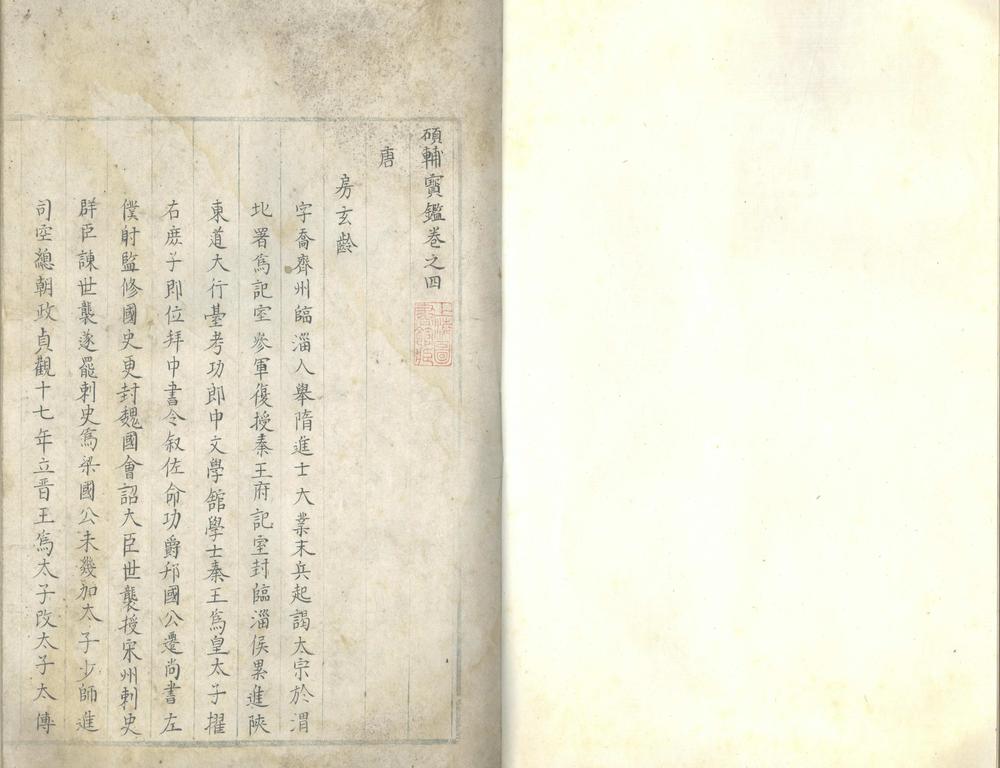 碩輔寶鑑卷之四
唐
房玄齡
字喬齊州臨淄人舉隋進士大業末兵起謁太宗於渭
北署爲記室參軍復授秦王府記室封臨淄侯累進陝
東道大行臺考功郎中文學舘學士秦王爲皇太子擢
右庶子即位拜中書令叙佐命功爵邗國公遷尚書左
僕射監修國史更封魏國會詔大臣世襲授宋州刺史
群臣諫世襲遂罷刺史爲梁國公未幾加太子少師進
司空總朝政貞觀十七年立晋王爲太子改太子太傅